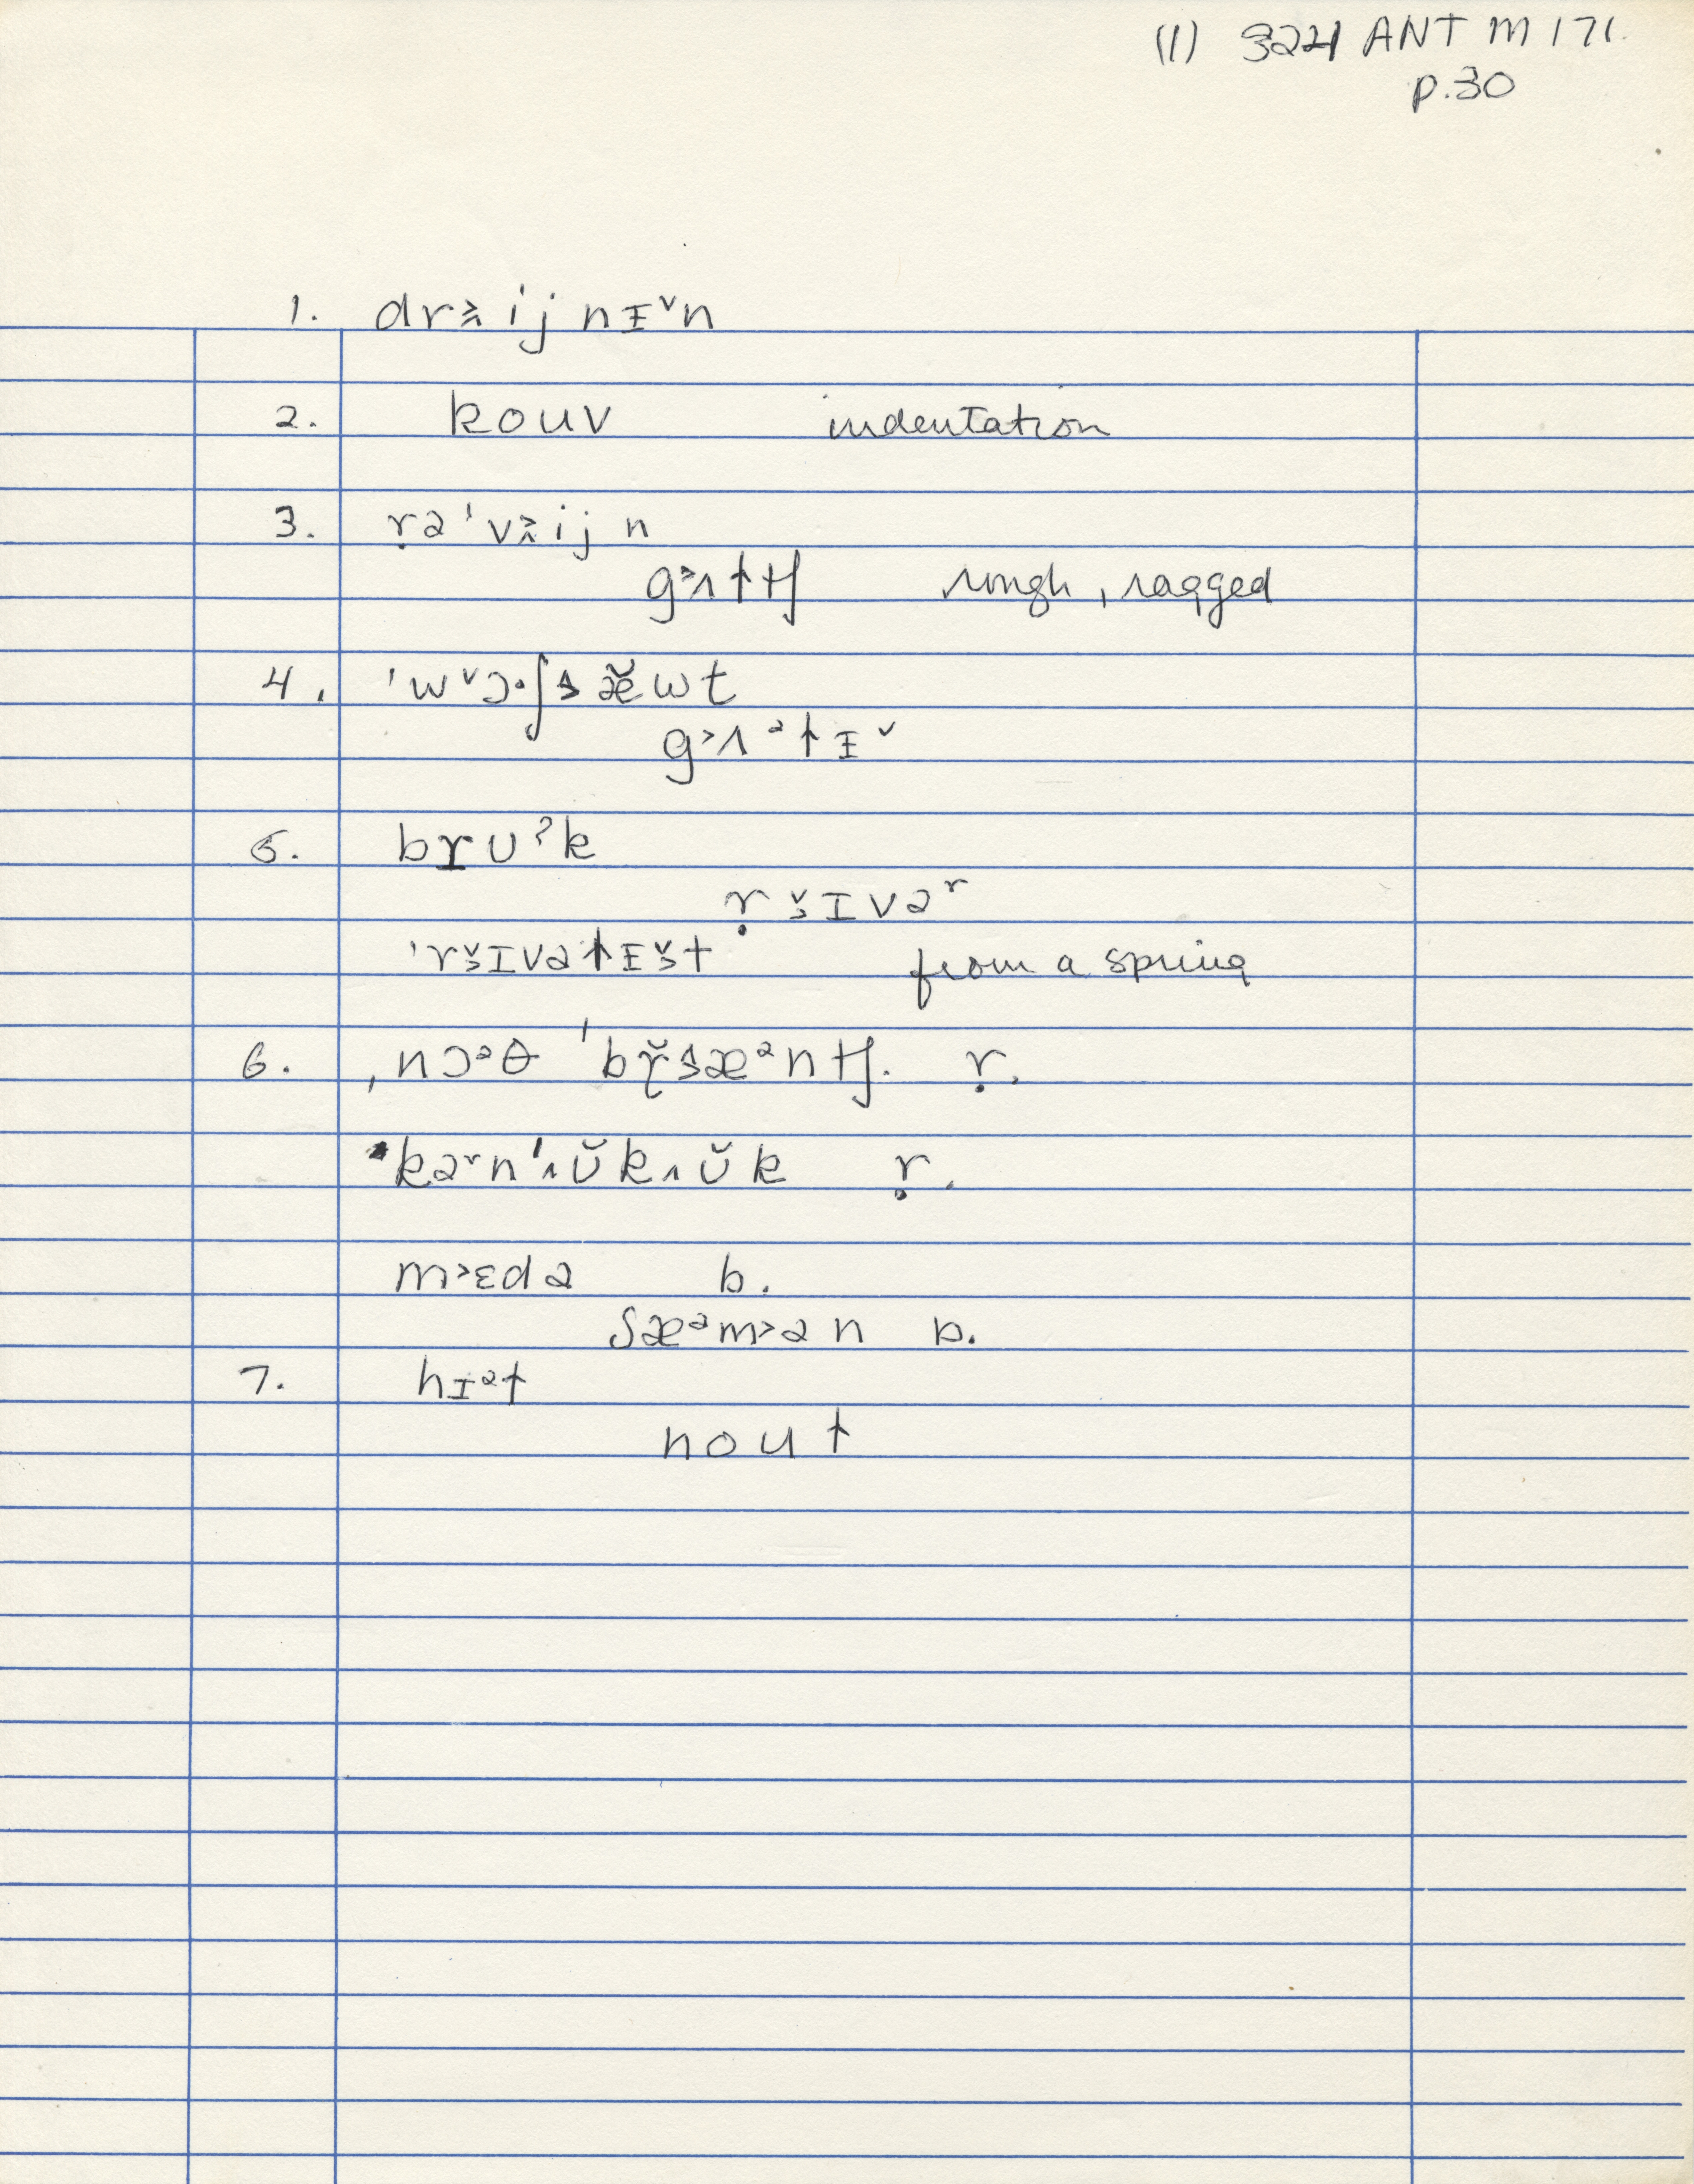 (1) 3221 ANT M 171.
p.30
1. drʌ˃ij nɪ˅n
2. kouv indentation
3. ṛə'vʌ˃ij n
g˃ʌɫtʃ rough, ragged
4. 'w˅ɔ·ʃɜæ̆wt
g˃ʌᵊɫɪ˅
5. brʊˀk
ṛ ɜ˅ɪvəʳ
'rɜ˅ɪvəɫɪɜ˅t from a spring
6. ˌnɔᵊθ 'br̆ɜæᵊntʃ. ṛ.
kəʳn'ʌŭkʌŭk ṛ.
m˃ɛdə b.
ʃæᵊm˃ən b.
7. hɪᵊɫ
nouɫ